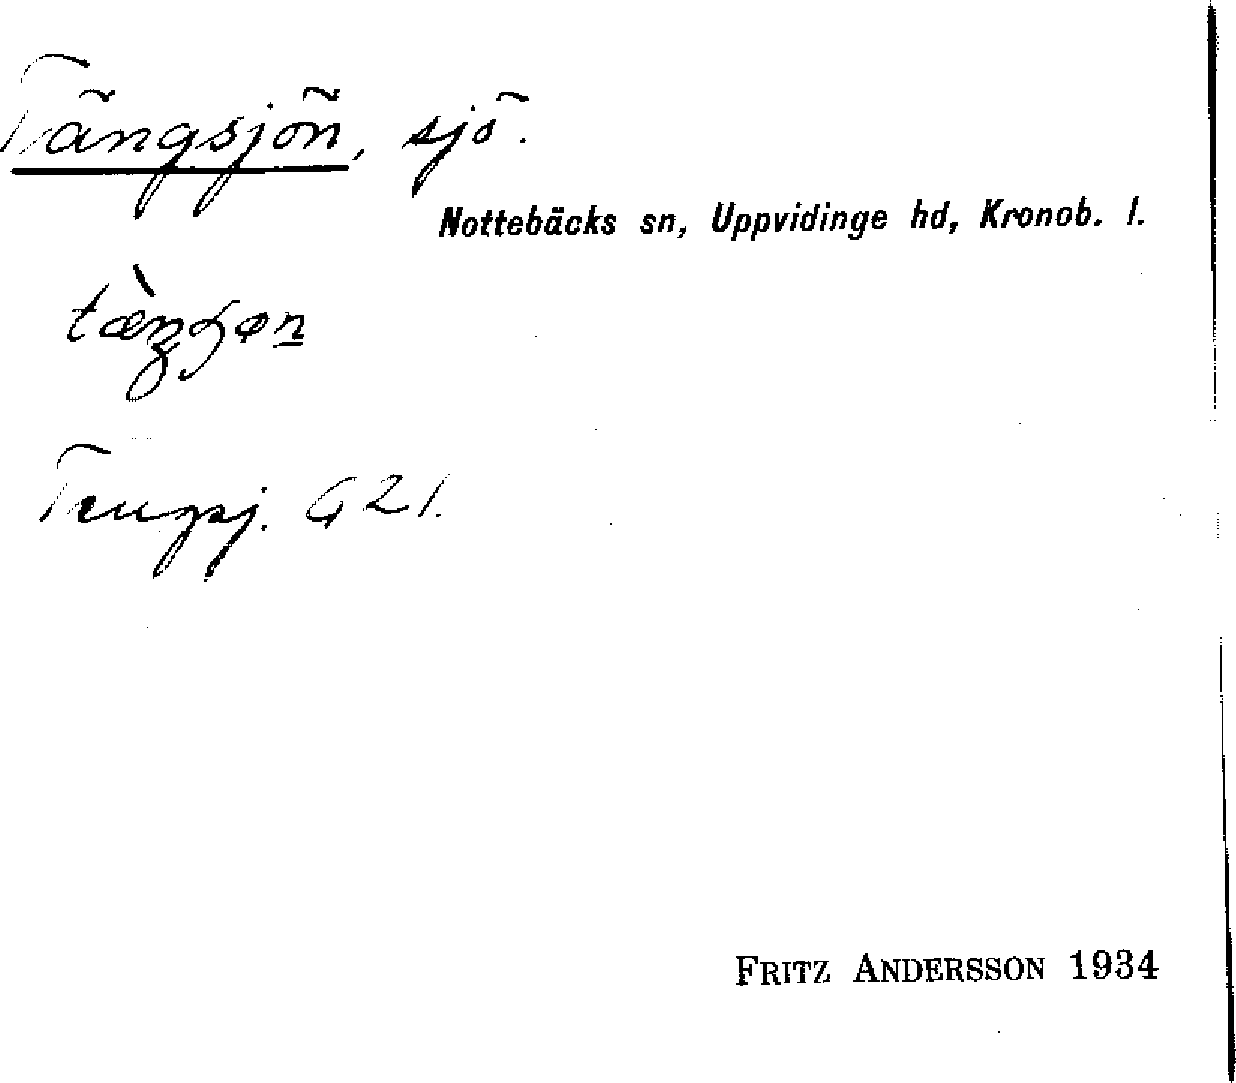 Tängsjön, sjö.
Nottebäcks sn, Uppvidinge hd, Kronob. l.
Tengsj. G 21.
FRITZ ANDERSSON 1934